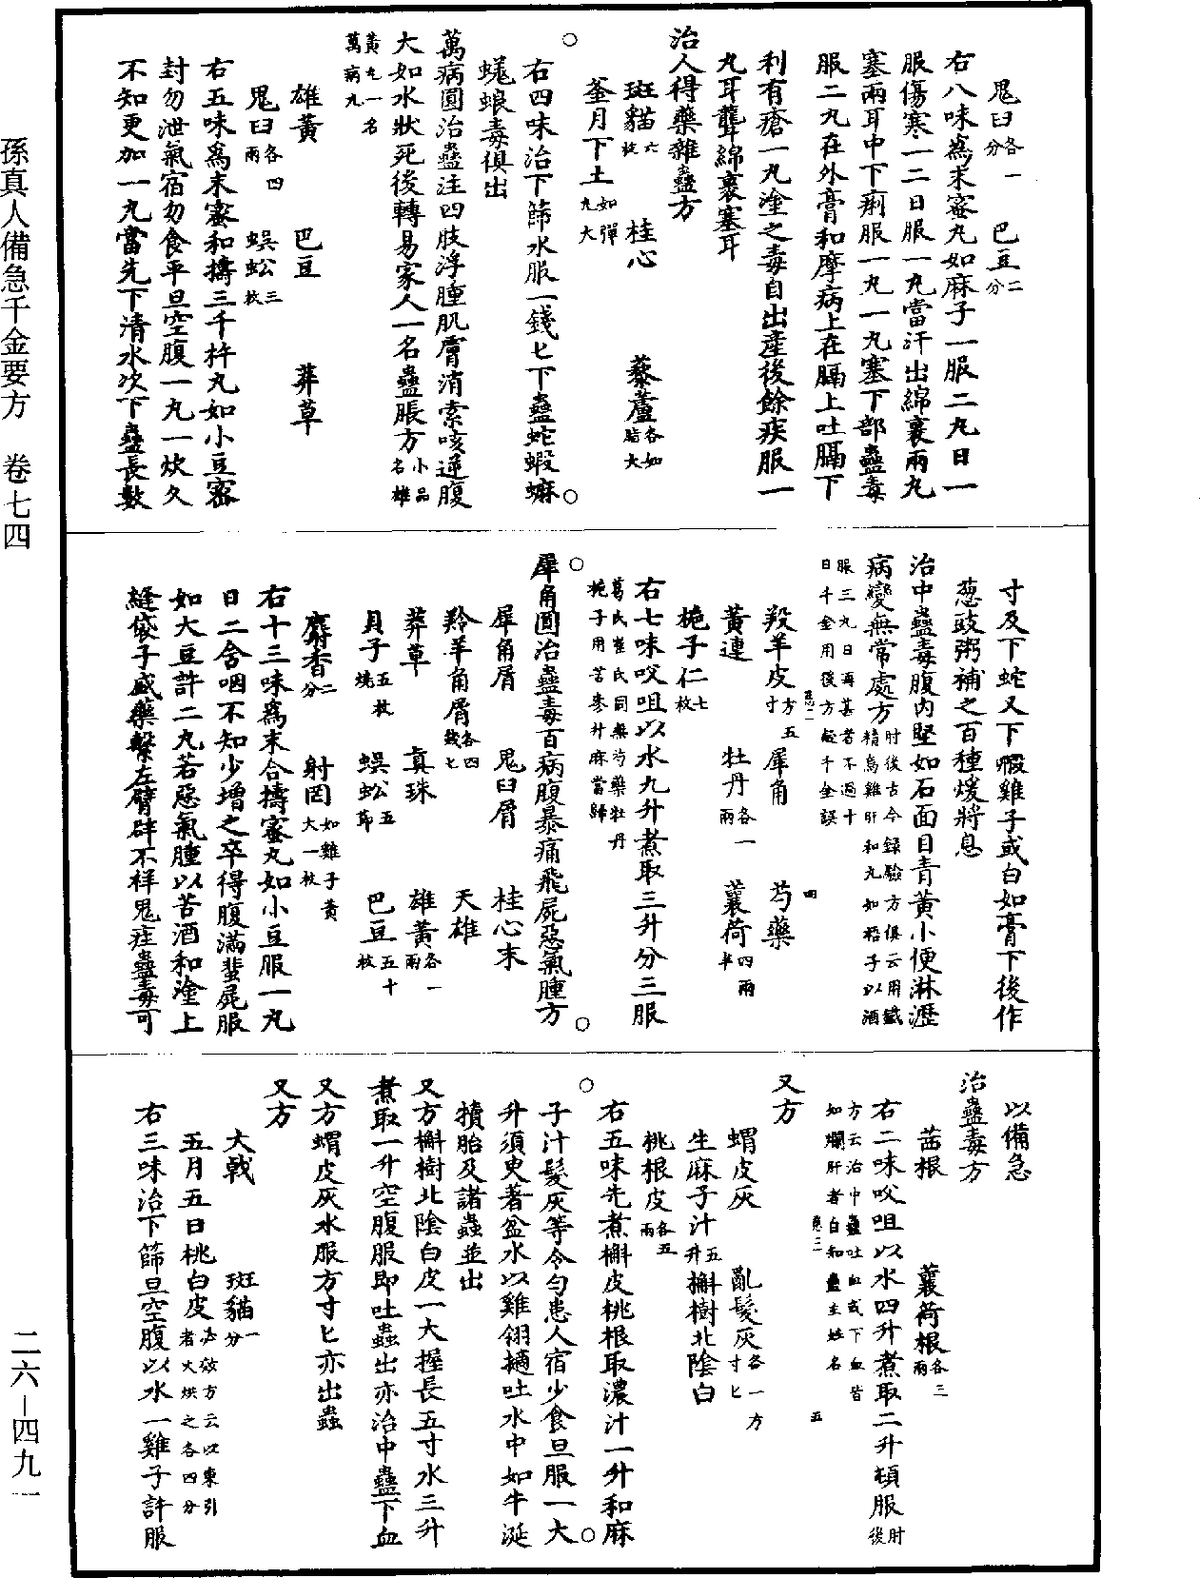 鬼臼各一分　巴豆二分
右八味為末蜜丸如麻子一服二丸日一
服傷寒一二日服一丸當汗出綿裹兩丸
塞兩耳中下痢服一丸一丸塞下部蠱毒
服二丸在外膏和摩病上在膈上吐膈下
利有瘡一丸塗之毒自出產後餘疾服一
丸耳聾綿裹塞耳
治人得藥雜蠱方
斑貓六枚　桂心　藜蘆各如指大
釜月下土如彈丸大
右四味治下篩水服一錢匕下蠱蛇蝦蟆
蜣蜋毒俱出
萬病圓治蠱注四肢浮腫肌膚消索咳逆腹
大如水狀死後轉易家人一名蠱脹方小品名雄
黃丸一名萬病丸
雄黃　巴豆　莽草
鬼臼各四兩　蜈蚣三枚
右五味為末蜜和擣三千杵丸如小豆密
封勿泄氣宿勿食平旦空腹一丸一炊久
不知更加一丸當先下清水次下蠱長數
寸及下蛇又下蝦雞子或白如膏下後作
葱豉粥補之百種煖將息
治中蠱毒腹內堅如石面目青黃小便淋瀝
病變無常處方肘後古今錄驗方俱云用鐵精烏雞肝和丸如梧子以酒
服三丸日再甚者不過十日千金用後方疑千金誤
羖羊皮方五寸　犀角　芍藥
黃連　牡丹各一兩　蘘荷四兩半
梔子仁七枚
右七味㕮咀以水九升煮取三升分三服
葛氏崔氏同無芍藥牡丹梔子用苦參升麻當歸
犀角圓治蠱毒百病腹暴痛飛屍惡氣腫方
犀角屑　鬼臼屑　桂心末
羚羊角屑各四錢匕　天雄
莽草　真珠　雄黃各一兩
貝子五枚燒　蜈蚣五節　巴豆五十枚
麝香二分　射罔如雞子黃大一枚
右十三味為末合擣蜜丸如小豆服一丸
日二含咽不知少增之卒得腹滿蜚屍服
如大豆許二丸若惡氣腫以苦酒和塗上
縫袋子盛藥繫左臂辟不祥鬼疰蠱毒可
以備急
治蠱毒方
茜根　蘘荷根各三兩
右二味㕮咀以水四升煮取二升頓服肘後
方云治中蠱吐血或下血皆如爛肝者自知蠱主姓名
又方
蝟皮灰　亂髮灰各一方寸匕
生麻子汁五升　槲樹北陰白
桃根皮各五兩
右五味先煮槲皮桃根取濃汁一升和麻
子汁髮灰等令勻患人宿少食旦服一大
升須臾著盆水以雞翎擿吐水中如牛涎
犢胎及諸蟲並出
又方槲樹北陰白皮一大握長五寸水三升
煮取一升空腹服即吐蟲出亦治中蠱下血
又方蝟皮灰水服方寸匕亦出蟲
又方
大戟　斑貓一分
五月五日桃白皮必效方云以東引者火烘之各四分
右三味治下篩旦空腹以水一雞子許服
孫真人備急千金要方　卷七四
二六—四九一